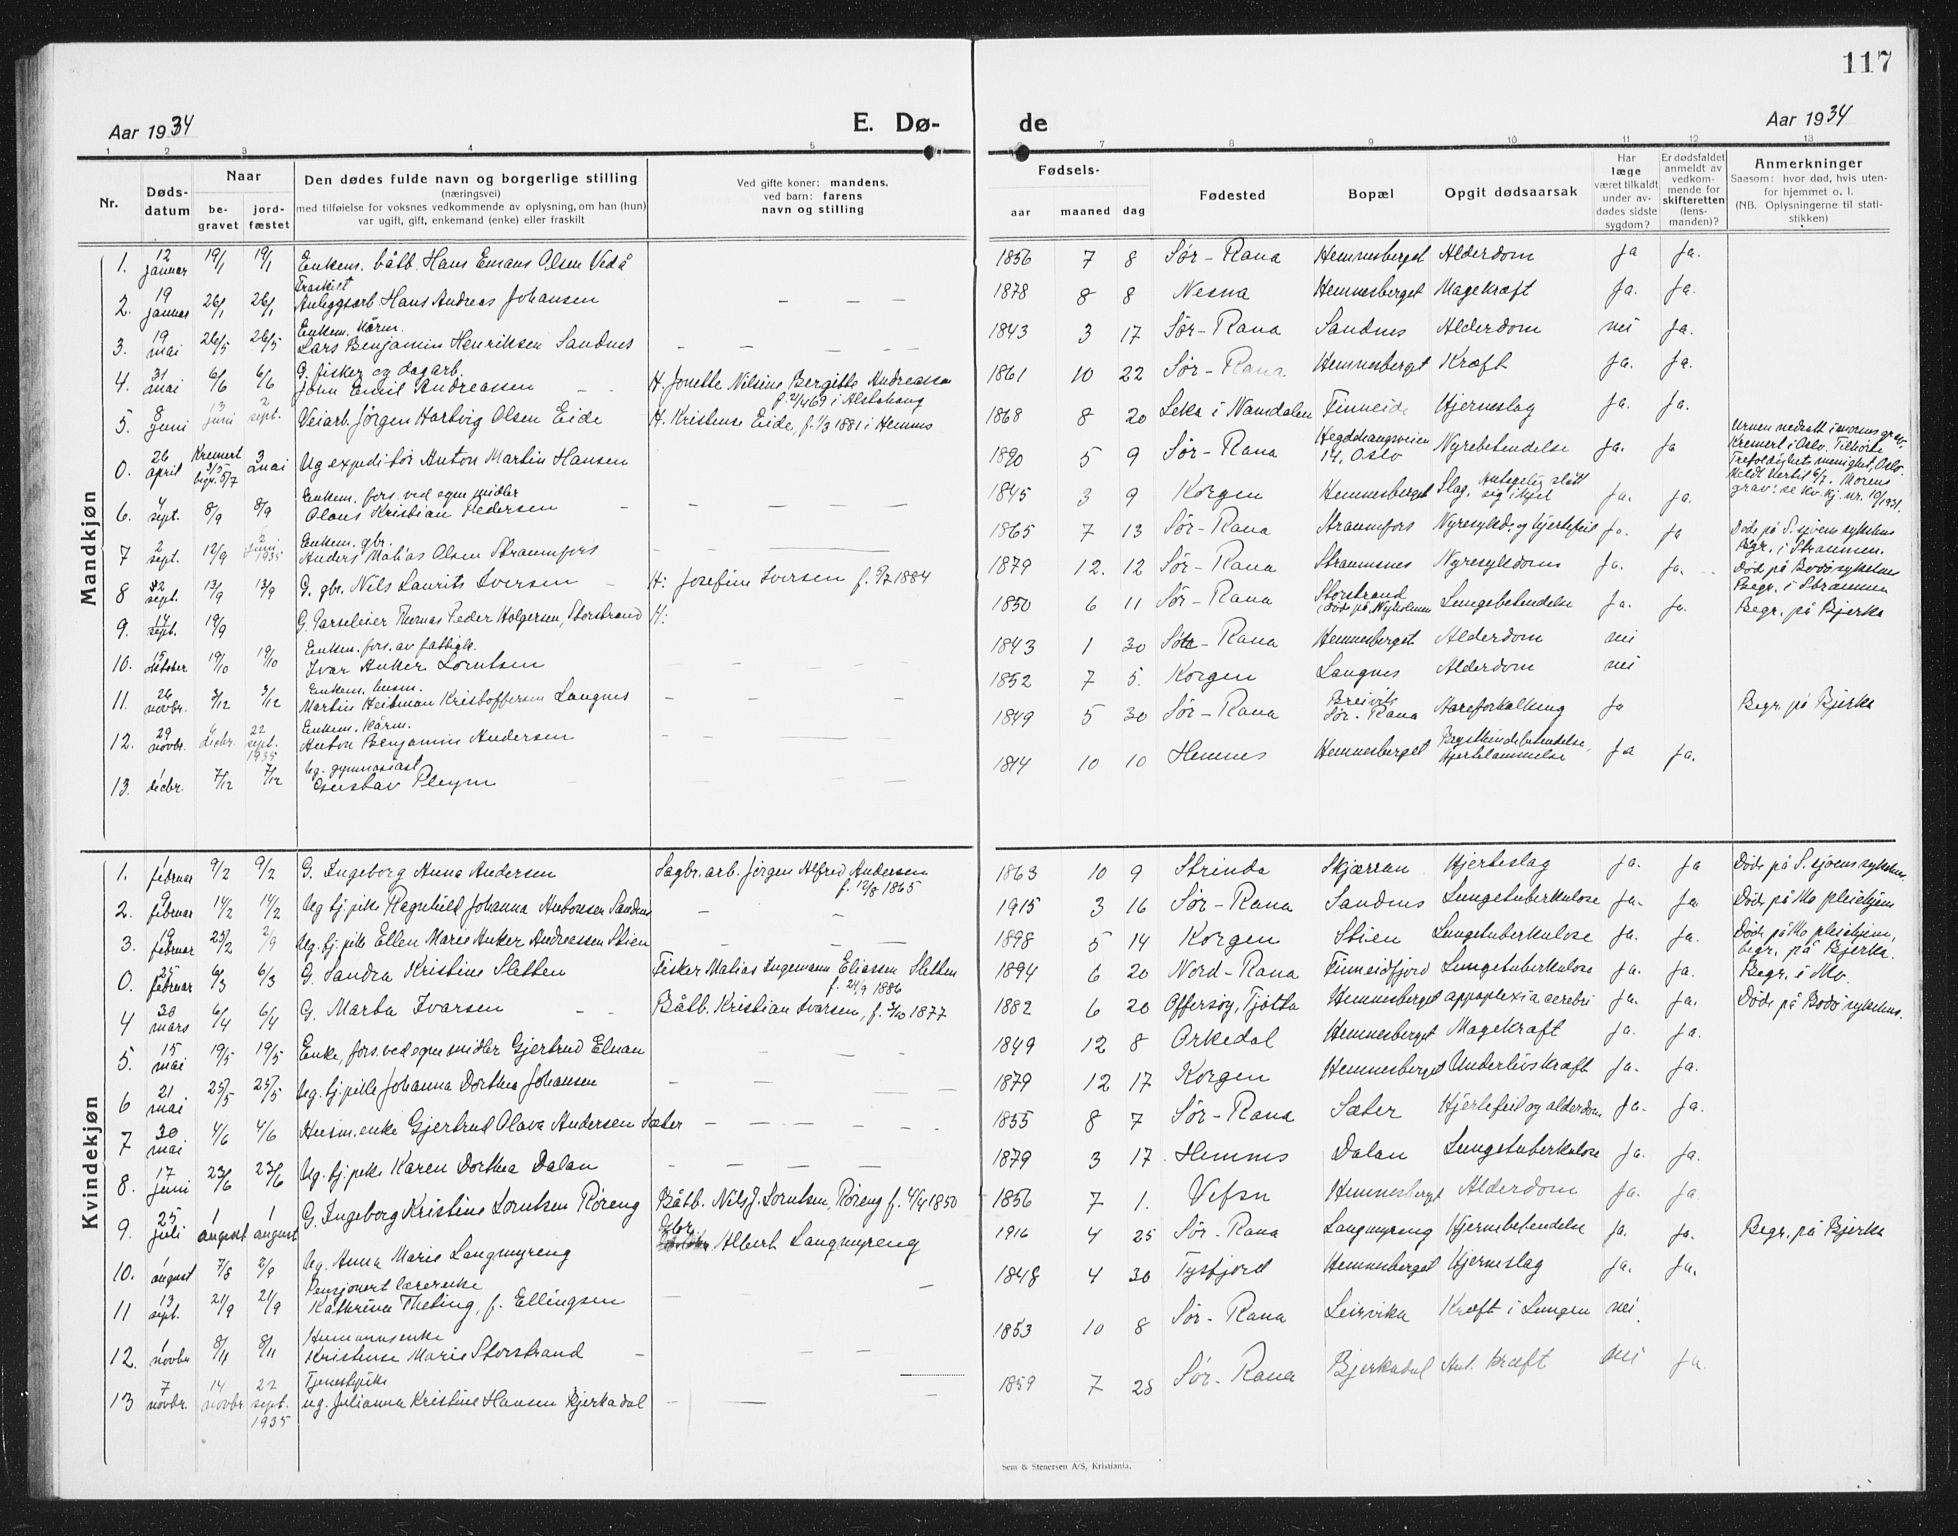 117
Aar 1934 E. Dø- de Aar 1934
1 2 3 4 5 7 8 9 10 11 12 13
Nr. Døds-datum Naar be-gravet jord-fæstet
Den dødes fulde navn og borgerlige stilling
(næringsvei)
med tilføielse for voksnes vedkommende av oplysning, om han (hun)
var ugift, gift, enkemand (enke) eller fraskilt
Ved gifte koner: mandens,
ved barn: farens
navn og stilling
Fødsels- aar maaned dag
Fødested Bopæl Opgit dødsaarsak
Har læge været tilkaldt under av-dødes sidste sygdom?
Er dødsfaldet anmeldt av vedkom-mende for skifteretten (lens-manden)?
Anmerkninger
Saasom: hvor død, hvis uten-for hjemmet o. l.
(NB. Oplysningerne til stati-stikken)
Mandkjøn
1. 12 januar 19/1 19/1 Enkem. båtb. Hans Emans Olsen Vedå 1856 7 8 Sør-Rana Hemnesberget Alderdom Ja Ja.
2. 19 januar 26/1 26/1 Fraskilt Anleggsarb Hans Andreas Johansen — — — 1878 8 8 Nesna Hemnesberget Magekræft Ja. Ja.
3. 19 mai 26/5 26/5 Enkem. Kårm. Lars Benjamin Henriksen Sandnes — — — — 1843 3 17 Sør-Rana Sandnes Alderdom nei Ja.
4. 31 mai 6/6 6/6 G. fisker og dagarb. John Emil Andreassen H. Jonette Nilsine Bergitte Andreassen f. 2/4 69 i Alstahaug 1861 10 22 Sør-Rana Hemnesberget Kræft Ja. Ja.
5. 8 juni 13 juni 2 sept. Veiarb. Jørgen Hartvig Olsen Eide H. Kristense Eide, f. 1/3 1881 i Hemnes 1868 8 20 Leka i Namdalen Finneide Hjerneslag Ja. Ja.
0. 26 april Kremert 3/5 begr. 5/7 3 mai Ug expeditør Anton Martin Hansen 1890 5 9 Sør-Rana Hegdehaugsveien 14, Oslo Nyrebetendelse Ja. Ja Urnen nedsatt i morens grav. Kremert i Oslo. Tilhørte Trefoldighets menighet, Oslo. Meldt hertil 6/7. Morens grav: se Kv.kj. nr. 10/1931.
6. 4 sept. 8/9 8/9 Enkem. fors. ved egne midler Olaus Kristian Pedersen — — — 1845 3 9 Korgen Hemnesberget Slag. Antagelig slått sig ihjel Ja. Ja.
7 2 sept. 12/9 2 juni 1935 Enkem. gbr. Anders Matias Olsen Straumfors — — — 1865 7 13 Sør-Rana Straumfors Nyresykd. og hjertefeil Ja. Ja Døde på S. sjøens sykehus Begr. i Straumen.
8 sept. 13/9 13/9 G. gbr. Nils Laurits Iversen H: Josefine Iversen f. 5/7 1884 1879 12. 12 Sør-Rana Straumsnes Nyresykdoms Ja. Ja. Død på Bodø sykehus Begr. i Straumen
9. 14 sept. 19/9 G. Parseleier Thomas Peder Holgersen, Storstrand H: 1850 6 11 Sør-Rana Storstrand (død på Nyholmen Lungebetendelse Ja. Ja. Begr. på Bjerka
10. 15 oktober 19/10 19/10 Enkem. fors. av fattigk. Ivar Anker Lorntsen 1843 1 30 Sør-Rana Hemnesberget Alderdom nei
11. 26 novbr. 3/12 3/12 Enkem. husm. Martin Heitman Kristoffersen Langnes — — — — 1852 7 5. Korgen Langnes Alderdom nei
12. 29 novbr. 6 decbr. 22 sept. 1935 Enkem. Kårm. Anton Benjamin Andersen 1849 5 30 Sør-Rana Breivik Sør-Rana Aareforkalkning Ja Begr. på Bjerka
13. 1 decbr. 7/12 7/12 Ug. gymnasiast Gustav Pleym 1914 10 10 Hemnes Hemnesberget Brysthindebetendelse, Hjertelammelse Ja Ja.
Kvindekjøn
1. 1 februar 9/2 9/2 G. Ingeborg Anna Andersen Sagbr. arb. Jørgen Alfred Andersen f. 12/8 1865 1863 10 9 Strinda Skjærran Hjerteslag Ja. Ja Døde på S. sjøens sykehus.
2. 9 februar 14/2 14/2 Ug tj.pike Ragnhild Johanna Antonsen Sandnes — — 1915 3 16 Sør-Rana Sandnes Lungetuberkulose Ja. Ja Døde på Mo pleiehjem
3. 19 februar 25/2 2/9 Ug. tj.pike Ellen Marie Anker Andreassen Stien — — — 1898 5 14 Korgen Stien Lungetuberkulose Ja. Ja. Døde på Mo pleiehjem, begr. på Bjerka.
0. 25 februar 6/3 6/3 G. Sandra Kristine Sletten Fisker Matias Ingemann Eliassen Sletten f. 24/9 1886 1894 6 20 Nord-Rana Finneidfjord Lungetuberkulose Ja. Ja. Begr. i Mo.
4 30 mars 6/4 6/4 G. Marta Ivarsen Båtb. Kristian Ivarsen, f. 3/10 1877 1882 6 20 Offersøy, Tjøtta Hemnesberget appoplexia cerebri Ja. Ja. Døde på Bodø sykehus.
5. 15 mai 19/5 19/5 Enke, fors. ved egne midler Gjertrud Elnan 1849 12 8 Orkedal Hemnesberget Magekræft Ja. Ja.
6 21 mai 25/5 25/5 Ug. tj.pike Johanna Dorthea Johansen — — — 1879 12 17 Korgen Hemnesberget Underlivskræft Ja. Ja.
7 30 mai 4/6 4/6 Husm. enke Gjertrud Olava Andersen Sæter — — — — — 1855 8 7 Sør-Rana Sæter Hjertefeil og alderdom Ja. Ja.
8. 17 juni 23/6 23/6 Ug. tj.pike Karen Dorthea Dalan — — — — 1879 3 17 Hemnes Dalan Lungetuberkulose Ja. Ja.
9. 25 juli 1 august 1 august G. Ingeborg Kristine Lorntsen Røreng Båtb. Nils J. Lorntsen, Røreng f. 4/4 1850 1856 7 1. Vefsn Hemnesberget Alderdom Ja. Ja.
10. 1 august 7/8 2/9 Ug. Anna Marie Langmyreng Gbr. Albert Langmyreng 1916 4 25 Sør-Rana Langmyreng Hjernebetendelse Ja. Ja. Begr. på Bjerka
11 13 sept. 21/9 21/9 Pensjonert lærerenke Kathrine Theting, f. Ellingsen — — 1848 4 30 Tysfjord Hemnesberget Hjerneslag Ja. Ja.
12. 1 novbr 8/11 8/11 Husmannsenke Kristense Marie Storstrand — — — 1853 10 8 Sør-Rana Leirvika Kræft i Lungen nei.
13 7 novbr. 14 novbr 22 sept. 1935 Tjenestpike ug. Julianna Kristine Hansen Bjerkadal — — — 1859 7 25 Sør-Rana Bjerkadal Ant. kræft nei Ja.
Sem & Stenersen A/S, Kristiania.